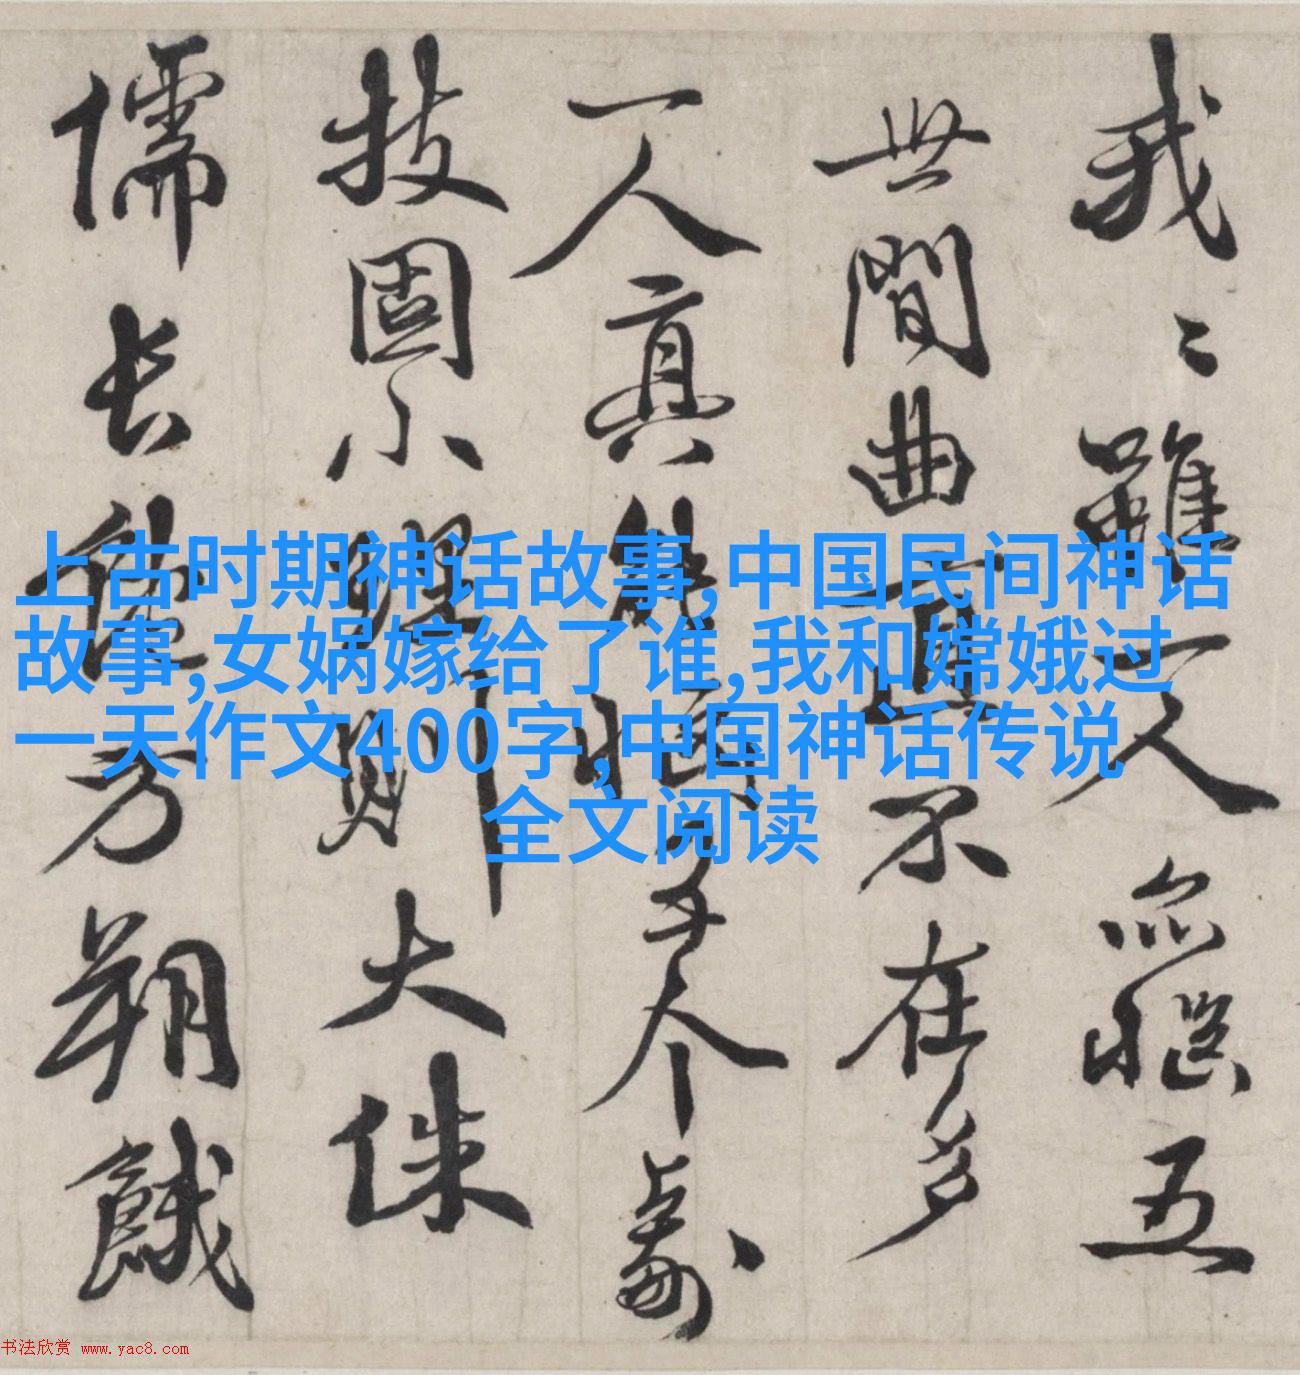 上古时期神话故事,中国民间神话
故事,女娲嫁给了谁,我和嫦娥过
一天作文400字,中国神话传说
全文阅读
我〻雖一人亦五
世間曲直不在多
一人真个
技固小則大侏
儒长方朔餓
书法欣赏 www.yac8.com